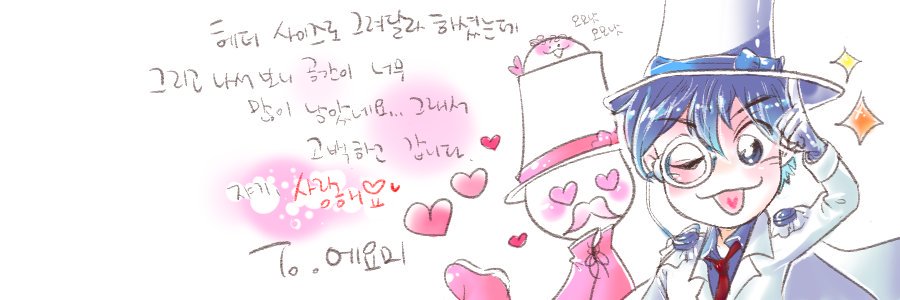 헤더 사이즈로 그려달라 하셨는데
그리고 나서 보니 공간이 너무
많이 남았네요... 그래서
고백하고 갑니다.
자기 사랑해요♡♥
To. 에요미
오오냐
오오냐